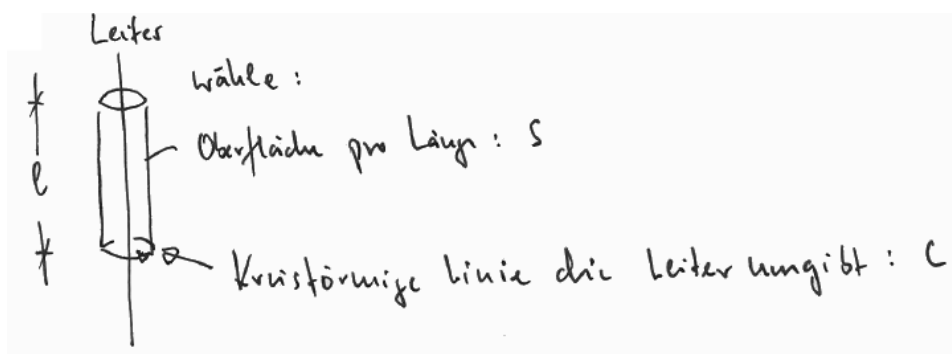 Leiter
wähle :
Oberfläche pro Länge : S
l
Kreisförmige Linie die Leiter umgibt : C